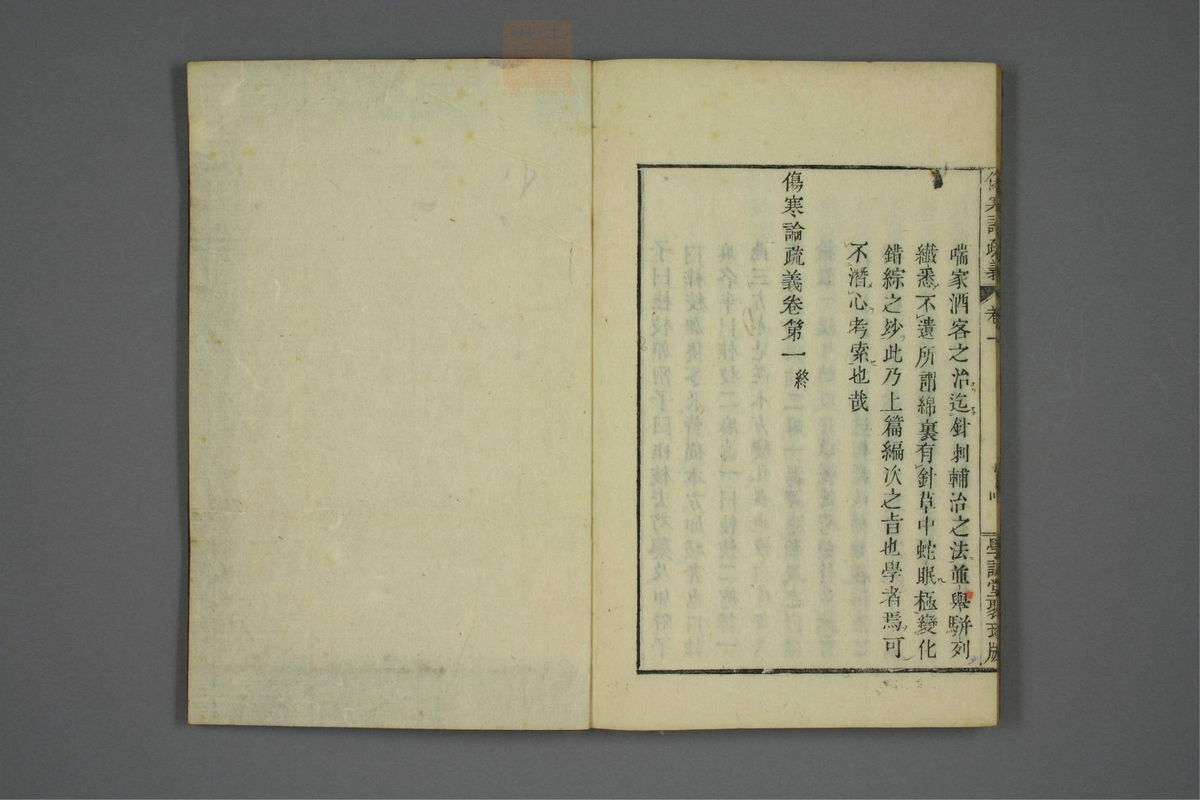 喘家酒客之治迄針刺輔治之法並舉駢列
纖悉不遺所謂綿裏有針草中蛇眠極變化
錯綜之妙此乃上篇編次之旨也學者焉可
不潛心考索也哉
傷寒論疏義卷第一終